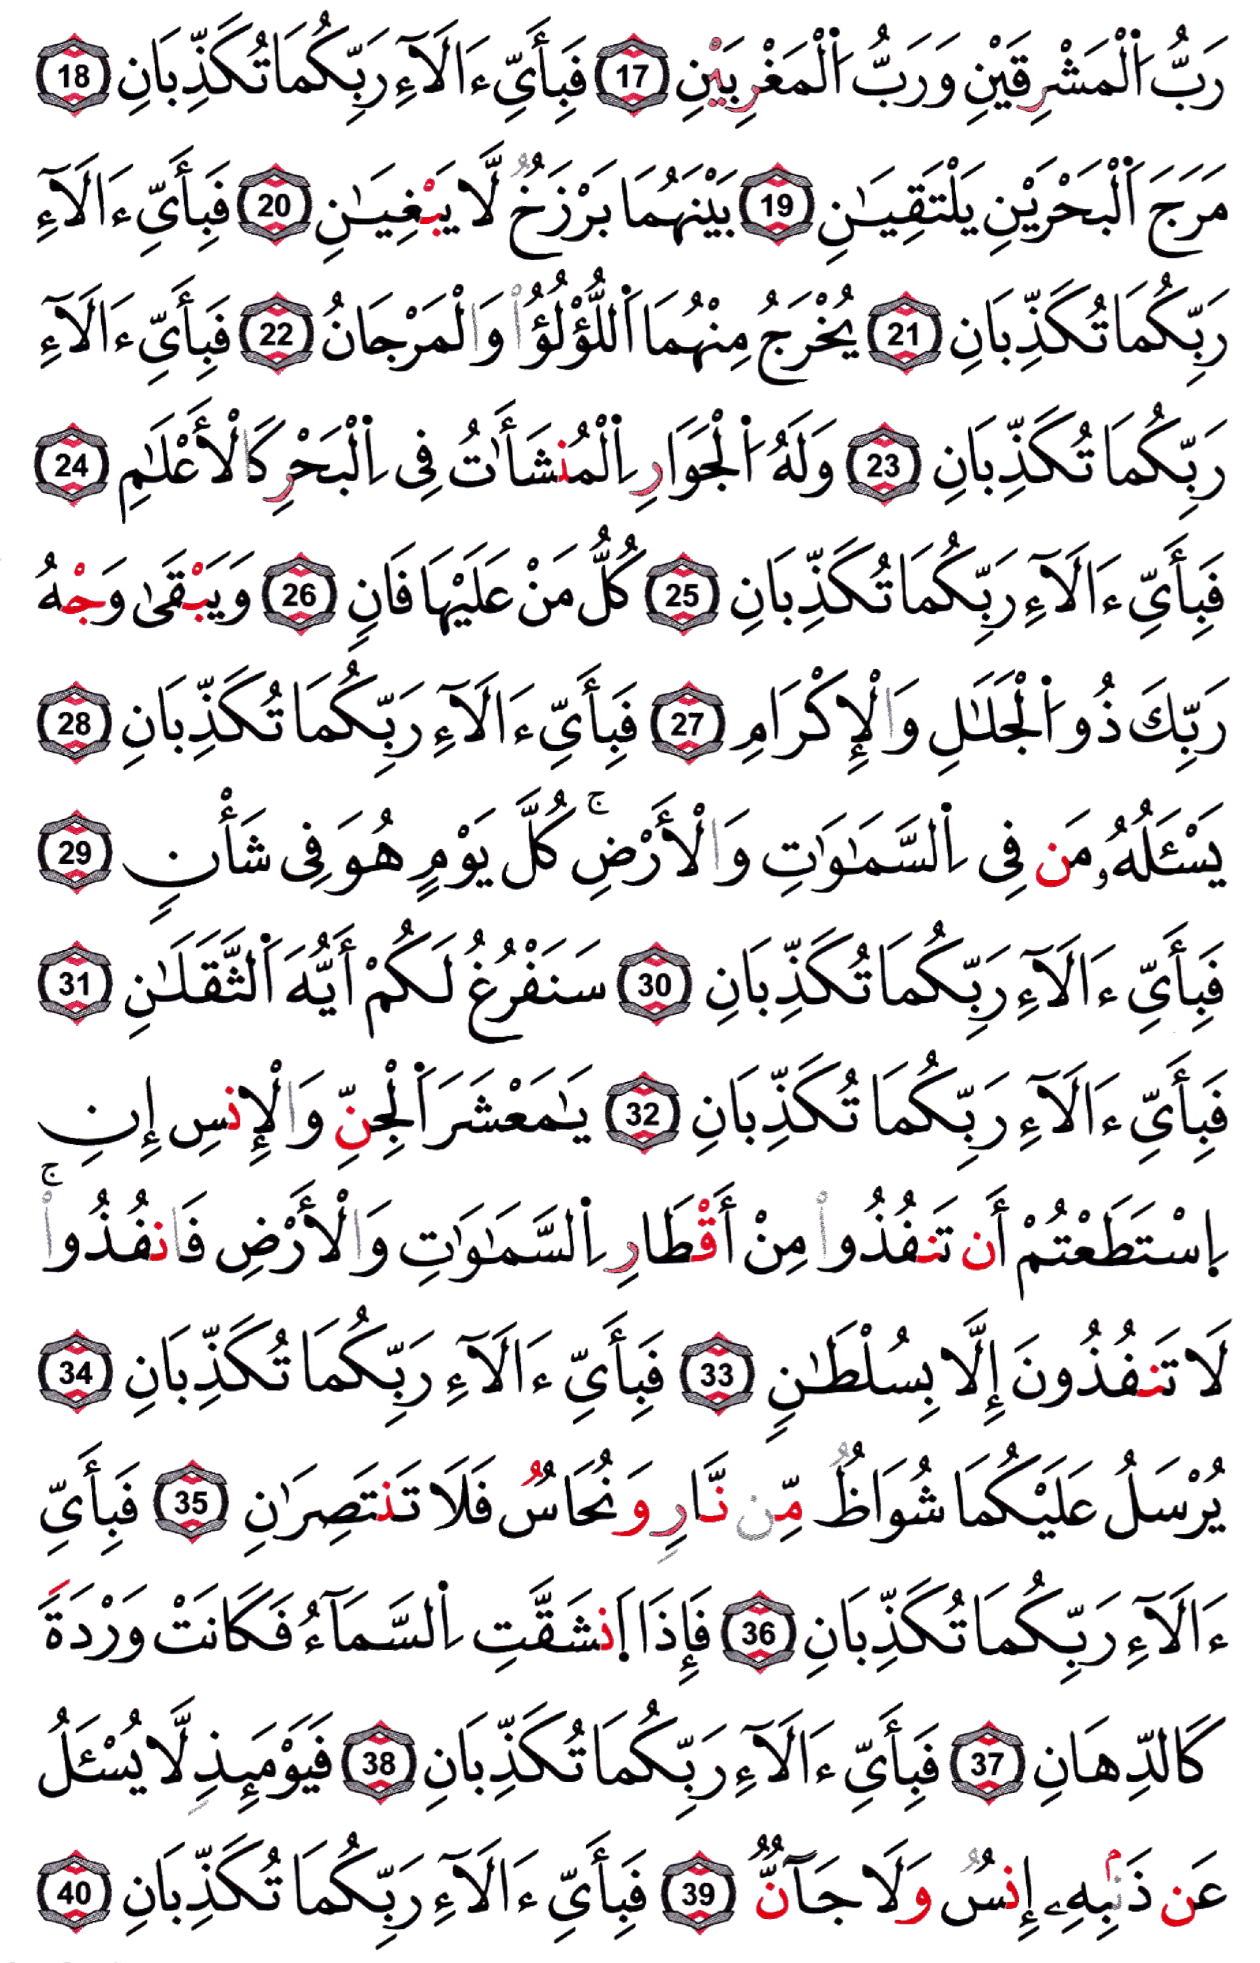 رَبُّ اُ۬لْمَشْرِقَيْنِ وَرَبُّ اُ۬لْمَغْرِبَيْنِ 17 فَبِأَيِّ ءَالَآءِ رَبِّكُمَا تُكَذِّبَانِ 18
مَرَجَ اَ۬لْبَحْرَيْنِ يَلْتَقِيَـٰنِ 19 بَيْنَهُمَا بَرْزَخٌ لَّا يَبْغِيَـٰنِ 20 فَبِأَيِّ ءَالَآءِ
رَبِّكُمَا تُكَذِّبَانِ 21 يُخْرَجُ مِنْهُمَا اَ۬للُّؤْلُؤُاْ وَالْمَرْجَانُ 22 فَبِأَيِّ ءَالَآءِ
رَبِّكُمَا تُكَذِّبَانِ 23 وَلَهُ اُ۬لْجَوَارِ اِ۬لْمُنشَأَٰتُ فِى اِ۬لْبَحْرِ كَالْأَعْلَـٰمِ 24
فَبِأَيِّ ءَالَآءِ رَبِّكُمَا تُكَذِّبَانِ 25 كُلُّ مَنْ عَلَيْهَا فَانٍ 26 وَيَبْقَىٰ وَجْهُ
رَبِّكَ ذُو اُ۬لْجَلَـٰلِ وَالْإِكْرَامِ 27 فَبِأَيِّ ءَالَآءِ رَبِّكُمَا تُكَذِّبَانِ 28
يَسْـَٔلُهُۥ مَن فِى اِ۬لسَّمَـٰوَٰتِ وَالْأَرْضِۚ كُلَّ يَوْمٍ هُوَ فِى شَأْنٍ 29
فَبِأَيِّ ءَالَآءِ رَبِّكُمَا تُكَذِّبَانِ 30 سَنَفْرُغُ لَكُمْ أَيُّهَ اَ۬لثَّقَلَـٰنِ 31
فَبِأَيِّ ءَالَآءِ رَبِّكُمَا تُكَذِّبَانِ 32 يَـٰمَعْشَرَ اَ۬لْجِنِّ وَالْإِنسِ إِنِ
اِ۪سْتَطَعْتُمْ أَن تَنفُذُواْ مِنْ أَقْطَارِ اِ۬لسَّمَـٰوَٰتِ وَالْأَرْضِ فَانفُذُواْۚ
لَا تَنفُذُونَ إِلَّا بِسُلْطَـٰنٍ 33 فَبِأَيِّ ءَالَآءِ رَبِّكُمَا تُكَذِّبَانِ 34
يُرْسَلُ عَلَيْكُمَا شُوَاظٌ مِّن نَّارٍ وَنُحَاسٌ فَلَا تَنتَصِرَٰنِ 35 فَبِأَيِّ
ءَالَآءِ رَبِّكُمَا تُكَذِّبَانِ 36 فَإِذَا اَ۪نشَقَّتِ اِ۬لسَّمَآءُ فَكَانَتْ وَرْدَةً
كَالدِّهَانِ 37 فَبِأَيِّ ءَالَآءِ رَبِّكُمَا تُكَذِّبَانِ 38 فَيَوْمَئِذٍ لَّا يُسْـَٔلُ
عَن ذَنۢبِهِۦ إِنسٌ وَلَا جَآنٌّ 39 فَبِأَيِّ ءَالَآءِ رَبِّكُمَا تُكَذِّبَانِ 40